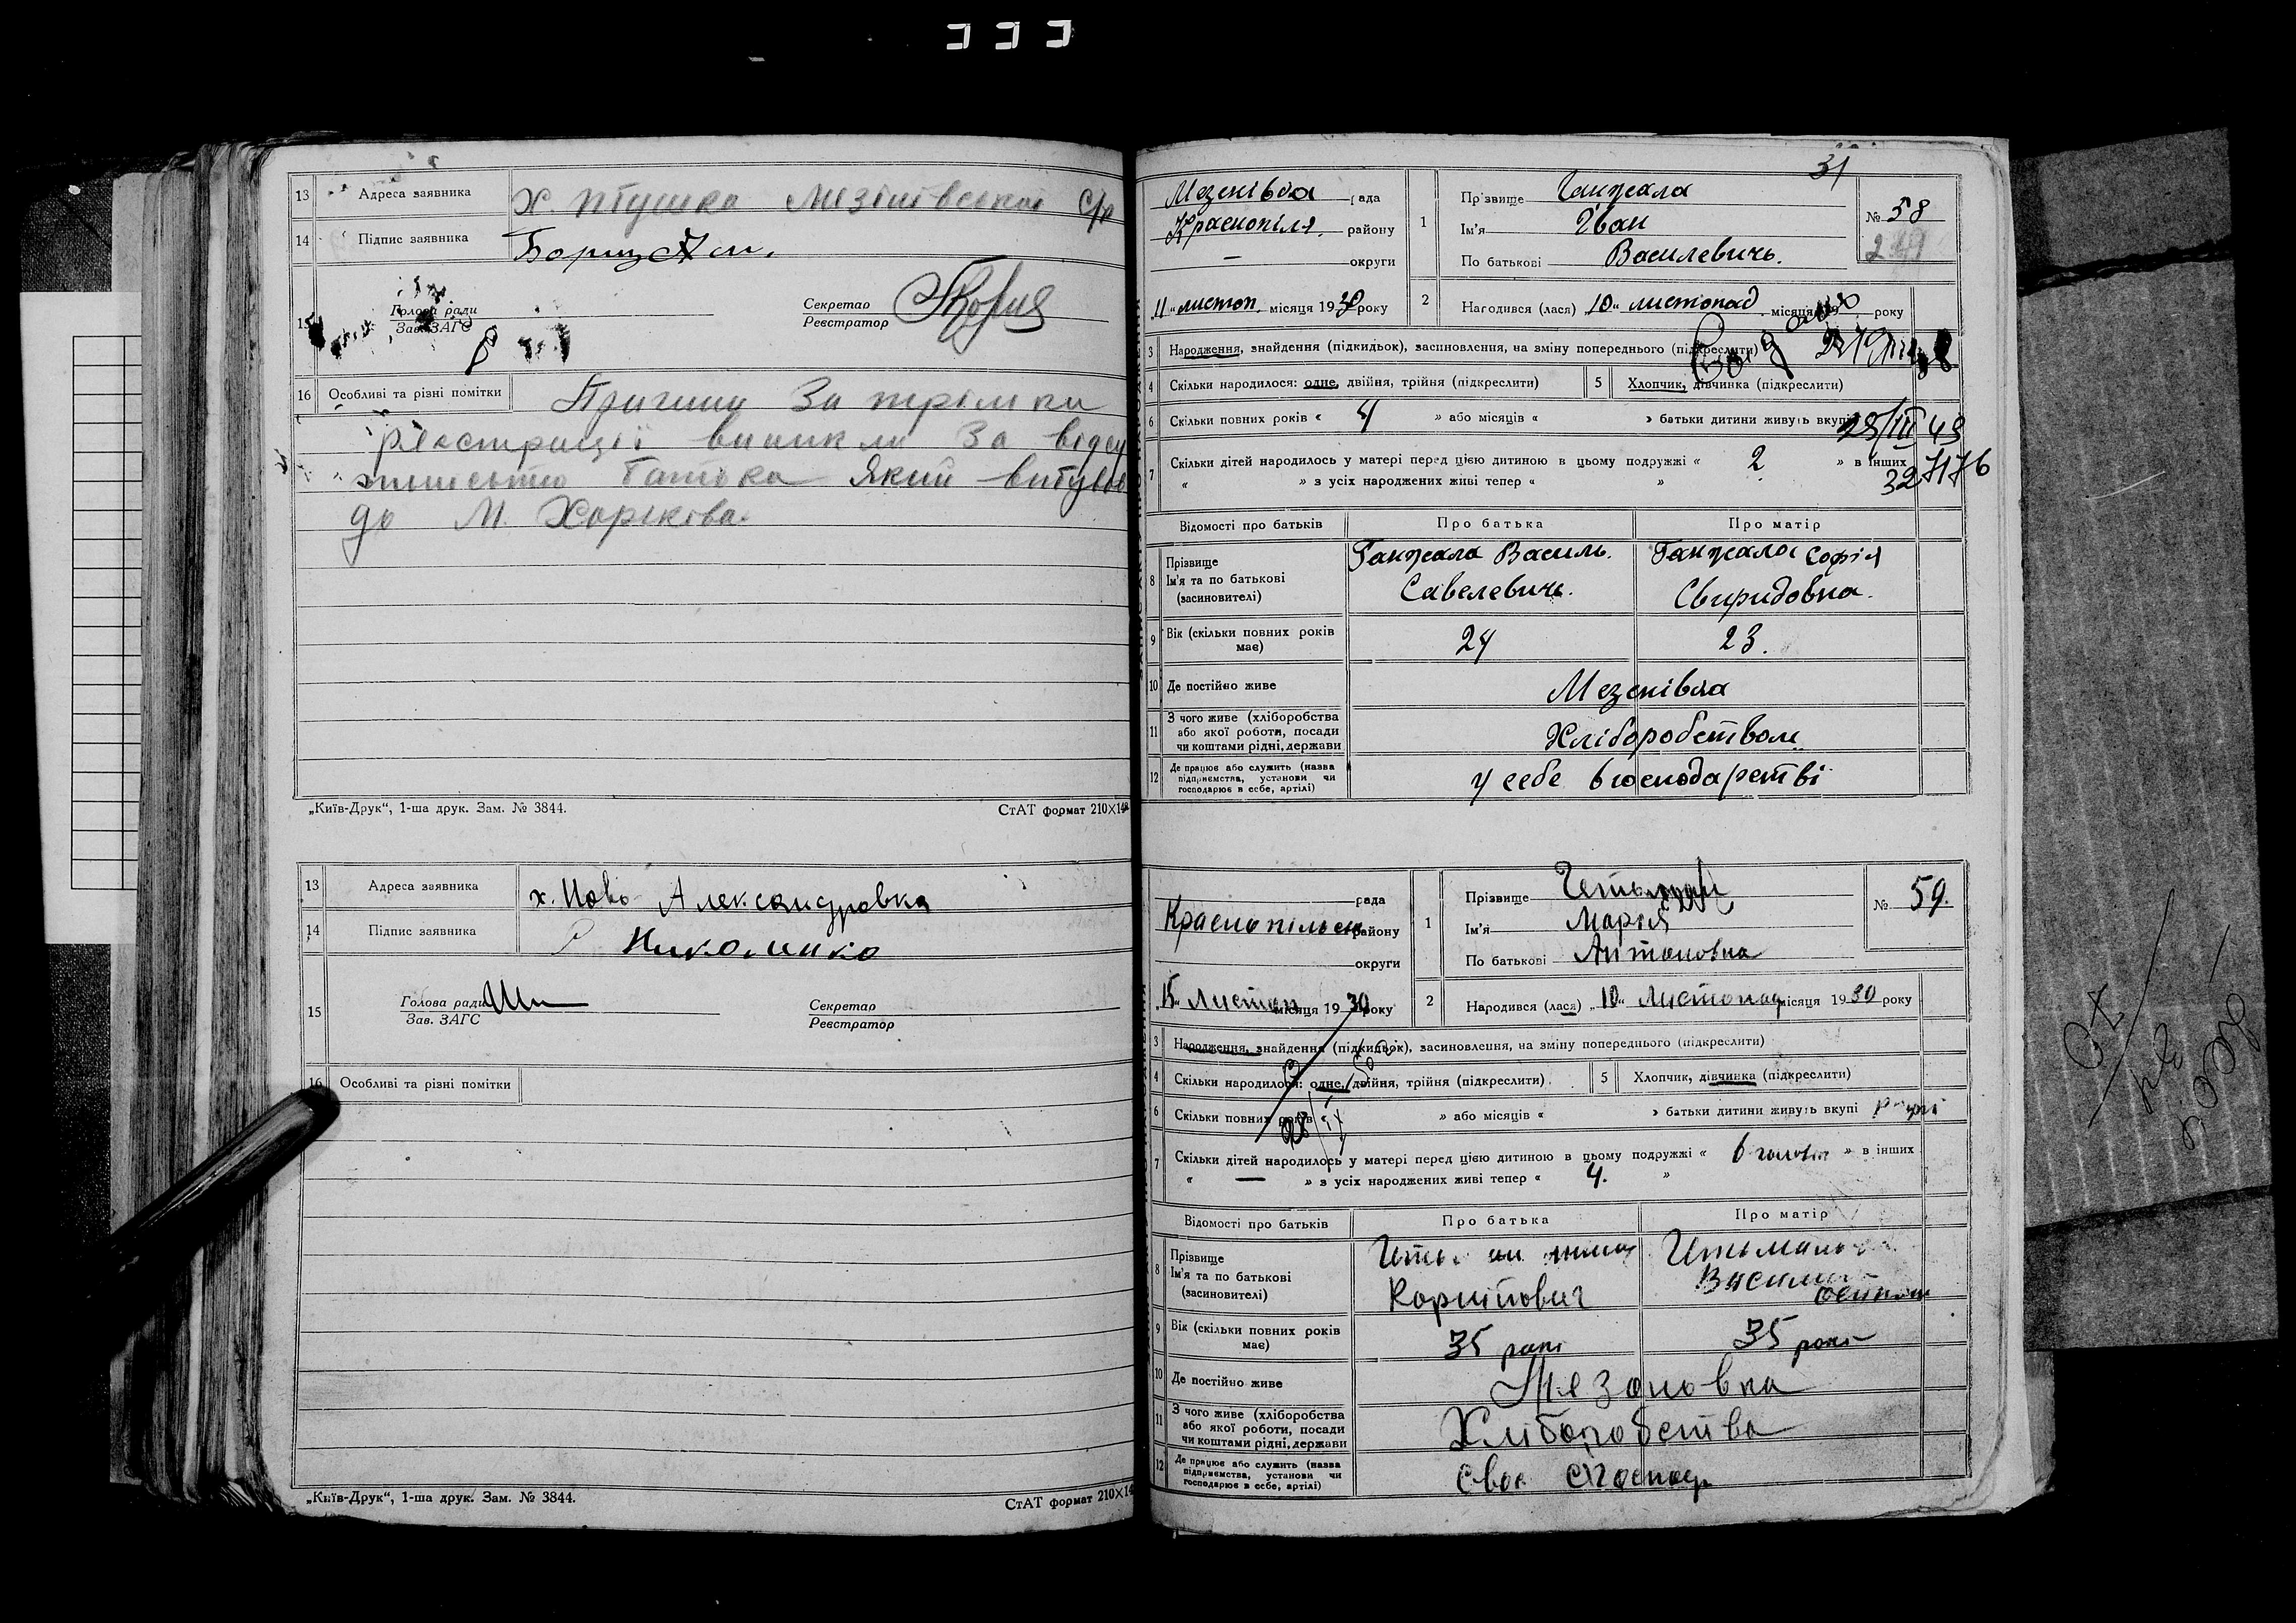 13 Адреса заявника х. Птушка Мезінівської с/р
14 Підпис заявника Борщ
15 Голова ради
Зав. ЗАГС
Секретар
Реєстратор
16 Особливі та різні помітки Причини Затрімки
реєстрації виникли За відсу
тнистью батька Який вибував
до М. Харікова.
„Київ-Друк“, 1-ша друк. Зам. № 3844. СтАТ формат 210×148
13 Адреса заявника х. Ново Александровка
14 Підпис заявника Николинко
15 Голова ради
Зав. ЗАГС
Секретар
Реєстратор
16 Особливі та різні помітки
„Київ-Друк“, 1-ша друк. Зам. № 3844. СтАТ формат 210×14
31
Мезенівва рада
Краснопілля району
— округи
1 Прізвище Ганжала
Ім'я Іван
По батькові Василевичь.
№ 58
"11" листоп. місяця 1930 року
2 Народився (лася) "10" листопад місяця року
3 Народження, знайдення (підкидьок), засиновлення, на зміну попереднього (підкреслити)
4 Скільки народилося: одне, двійня, трійня (підкреслити) 5 Хлопчик, дівчинка (підкреслити)
6 Скільки повних років « 4 » або місяців « » батьки дитини живуть вкупі
28/III 48
7 Скільки дітей народилось у матері перед цією дитиною в цьому подружжі « 2 » в інших
« » з усіх народжених живі тепер « »
327176
Відомості про батьків Про батька Про матір
8 Прізвище
Ім'я та по батькові
(засиновителі)
Ганжала Василь.
Савелевичь.
Ганжала Софія
Свиридовна.
9 Вік (скільки повних років має) 24 23.
10 Де постійно живе Мезенівва
11 З чого живе (хліборобства
або якої роботи, посади
чи коштами рідні, держави
Хліборобетвом
12 Де працює або служить (назва
підприємства, установи чи
господарює в себе, артілі)
у себе в господарстві
рада
Краснопільск району
округи
1 Прізвище
Ім'я Марія
По батькові Антоновна
№ 59.
"15" Листоп місяця 1930 року
2 Народився (лася) "10" Листопад місяця 1930 року
3 Народження, знайдення (підкидьок), засиновлення, на зміну попереднього (підкреслити)
4 Скільки народилося: одне, двійня, трійня (підкреслити) 5 Хлопчик, дівчинка (підкреслити)
6 Скільки повних років » або місяців « » батьки дитини живуть вкупі
7 Скільки дітей народилось у матері перед цією дитиною в цьому подружжі « 6 » в інших
« — » з усіх народжених живі тепер « 4. »
Відомості про батьків Про батька Про матір
8 Прізвище
Ім'я та по батькові
(засиновителі)
Карпович
9 Вік (скільки повних років має) 35 рокі 35 рокі
10 Де постійно живе Мезоновка
11 З чого живе (хліборобства
або якої роботи, посади
чи коштами рідні, держави
Хліборобства
12 Де працює або служить (назва
підприємства, установи чи
господарює в себе, артілі)